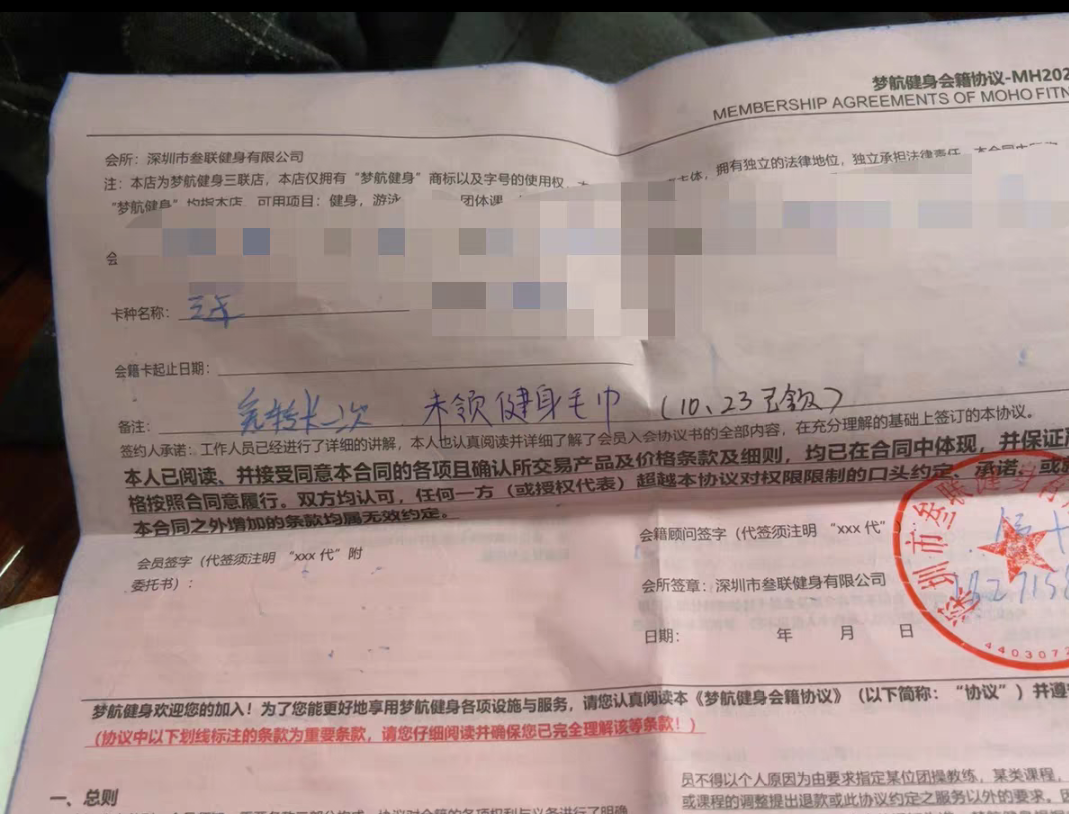 梦航健身会籍协议-MH202
MEMBERSHIP AGREEMENTS OF MOHO FITN
会所：深圳市叁联健身有限公司
注：本店为梦航健身三联店，本店仅拥有“梦航健身”商标以及字号的使用权，本 主体，拥有独立的法律地位，独立承担法律责任，本合同中
“梦航健身”均指本店，可用项目：健身，游泳 团体课
会
卡种名称：三年
会籍卡起止日期：
备注：免转卡一次 未领健身毛巾（10、23已领）
签约人承诺：工作人员已经进行了详细的讲解，本人也认真阅读并详细了解了会员入会协议书的全部内容，在充分理解的基础上签订的本协议。
本人已阅读、并接受同意本合同的各项且确认所交易产品及价格条款及细则，均已在合同中体现，并保证严
格按照合同意履行。双方均认可，任何一方（或授权代表）超越本协议对权限限制的口头约定、承诺、或
本合同之外增加的条款均属无效约定。
会员签字（代签须注明“xxx代”附
委托书）：
会籍顾问签字（代签须注明“xxx代”）
会所签章：深圳市叁联健身有限公司
日期： 年 月 日
深圳市叁联健身有
4403072
梦航健身欢迎您的加入！为了您能更好地享用梦航健身各项设施与服务，请您认真阅读本《梦航健身会籍协议》（以下简称：“协议”）并遵
（协议中以下划线标注的条款为重要条款，请您仔细阅读并确保您已完全理解该等条款！）
一、总则
员不得以个人原因为由要求指定某位团操教练，某类课程，
或课程的调整提出退款或此协议约定之服务以外的要求。因